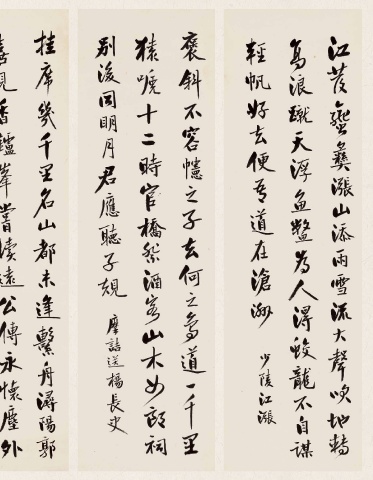 江發蠻彝漲山添雨雪流大聲吹地轉
高浪蹴天浮魚鱉為人得蛟龍不自謀
輕帆好去便吾道在滄洲 少陵江漲
褒斜不容幰之子去何之鳥道一千里
猿嗁十二時官橋祭酒客山木女郎祠
別後同明月君應聽子規 摩詰送楊長史
挂席幾千里名山都未逢繫舟潯陽郭
見香鑪峯嘗讀遠公傳永懷塵外